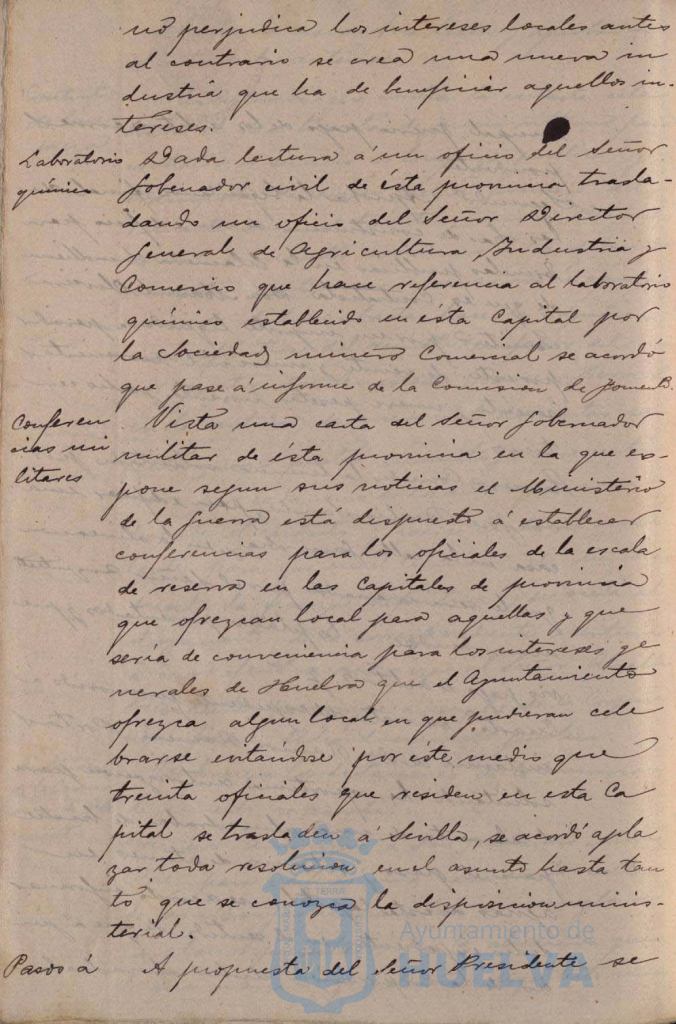 no perjudica los intereses locales antes
al contrario se crea una nueva in
dustria que ha de beneficiar aquellos in-
tereses.
Laboratorio
químico
Dada lectura á un oficio del Señor
Gobernador civil de ésta provincia trasla-
dando un oficio del Señor Director
General de Agricultura, Industria y
Comercio que hace referencia al laboratorio
químico establecido en ésta Capital por
la Sociedad minero Comercial se acordó
que pase á informe de la Comision de Fomento.
Conferen
cias mi
litares
Vista una carta del Señor Gobernador
militar de ésta provincia en la que ex-
pone segun sus noticias el Ministerio
de la Guerra está dispuesto á establecer
conferencias para los oficiales de la escala
de reserva en las Capitales de provincia
que ofrezcan local para aquellas y que
sería de conveniencia para los intereses ge
nerales de Huelva que el Ayuntamiento
ofrezca algun local en que pudieran cele
brarse evitandose por éste medio que
treinta oficiales que residen en esta Ca
pital se trasladen á Sevilla, se acordó apla
zar toda resolucion en el asunto hasta tan
to que se conozca la disposicion minis-
terial.
Pasos á
A propuesta del Señor Presidente se
Ayuntamiento de
HUELVA